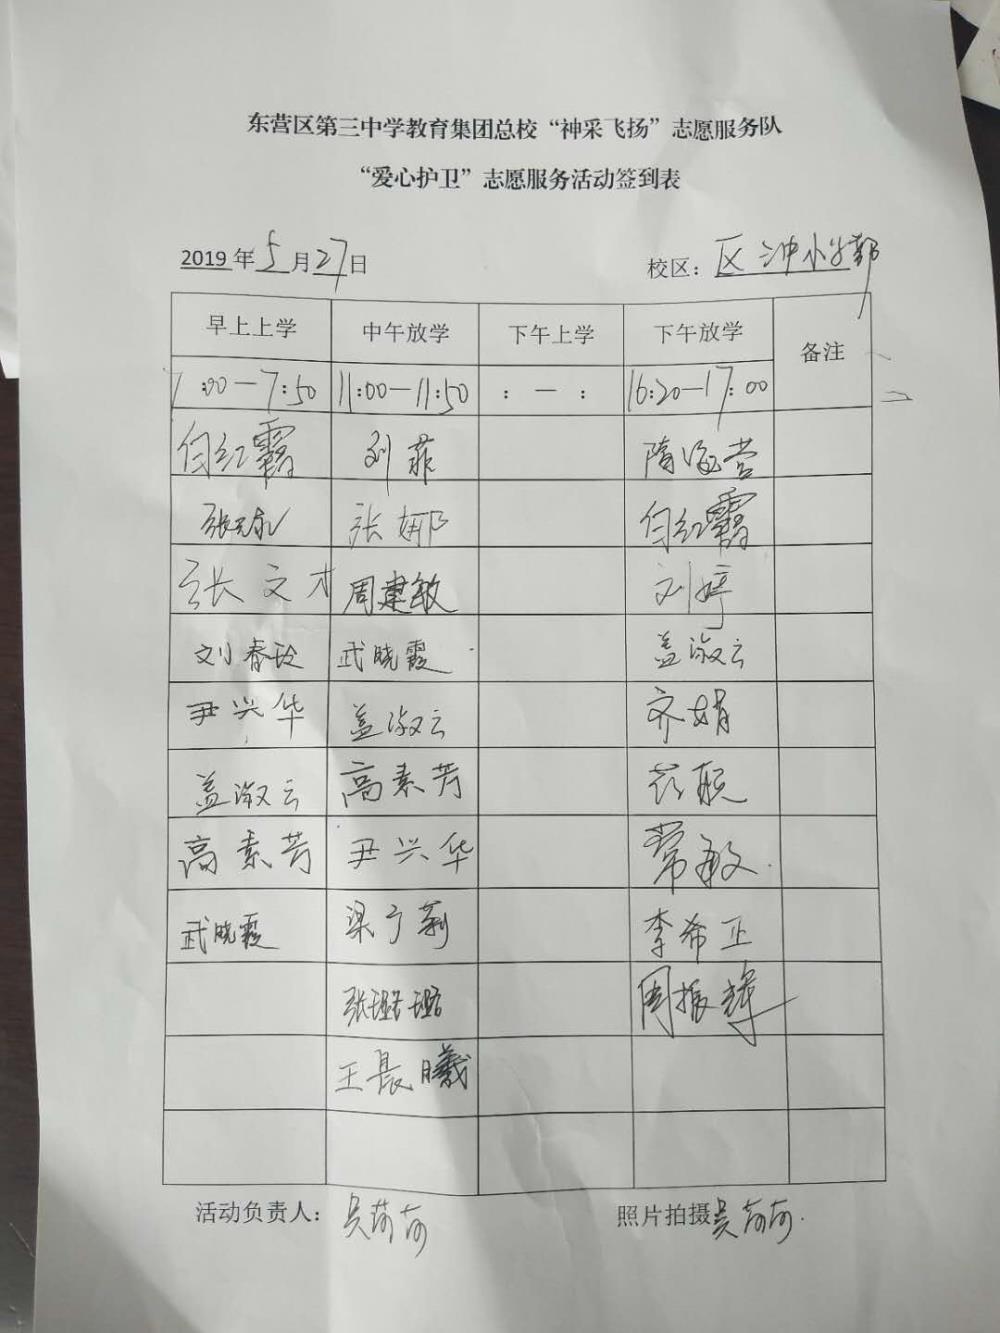 东营区第三中学教育集团总校“神采飞扬”志愿服务队
“爱心护卫”志愿服务活动签到表
2019年5月27日 校区：区三中小学部
早上上学 中午放学 下午上学 下午放学 备注
7:00—7:50 11:00—11:50 ： — ： 16:20—17:00
白红霞 刘菲
张娜 白红霞
张文才 周建敏 刘婷
刘春玲 武晓霞 盖淑云
尹兴华 盖淑云 齐娟
盖淑云 高素芳
高素芳 尹兴华 常敏
武晓霞 梁宁莉 李希正
张璐璐 周振辉
王晨曦
活动负责人：吴荷荷 照片拍摄吴荷荷